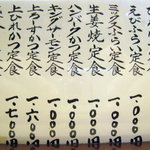 えびふらい定食 一、〇〇〇円
ミックスふらい定食 一、〇〇〇円
生姜焼定食 一、〇〇〇円
ハンバーグかつ定食 一、〇〇〇円
キングサーモン定食 一、〇〇〇円
上ろーすかつ定食 一、六〇〇円
上ひれかつ定食 一、七〇〇円